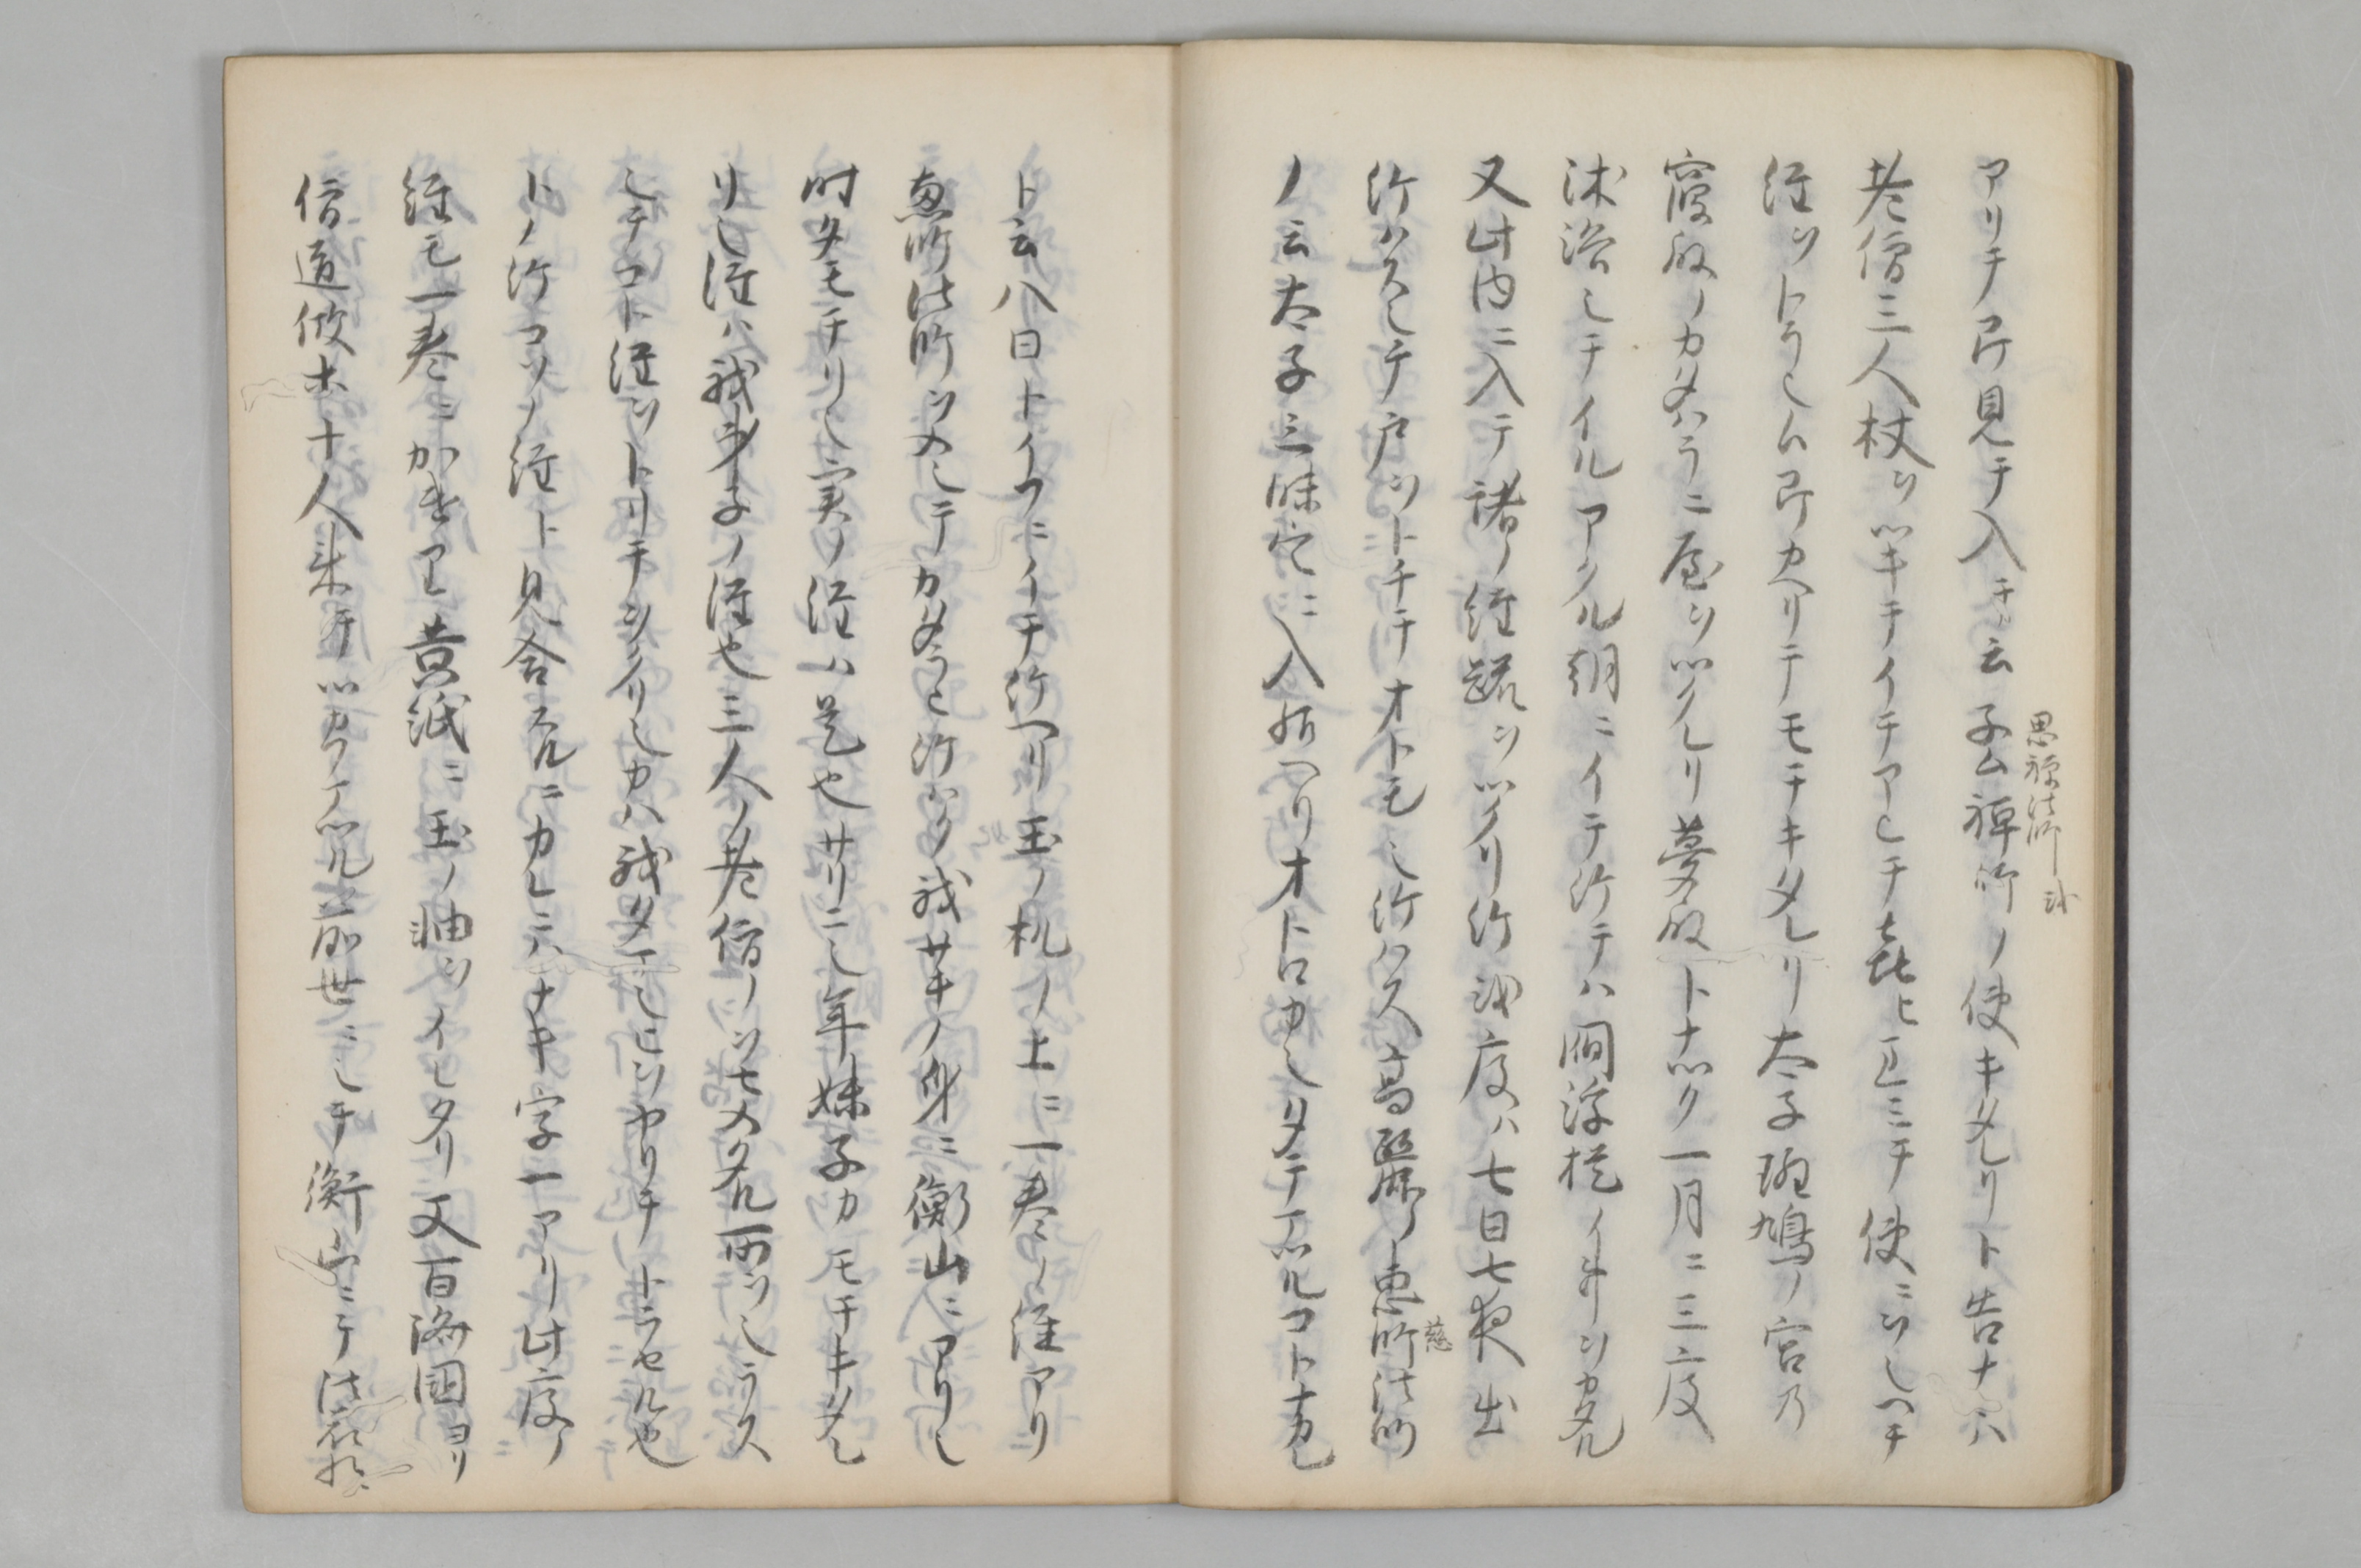 思禅法師或
アリテ即見テ入テ云子ム禅師ノ使キタレリト告ナハ
老僧三人杖ヲツキテイテアヒテ喜ヒヱミテ使ニヲシヘテ
経ヲトラシム即カヘリテモチキタレリ太子斑鳩ノ宮乃
寝殿ノカタハラニ屋ヲツクレリ夢殿トナツク一月ニ三度
沐浴シテイルアクル朝ニイテ給テハ閻浮提ノ事ヲカタル
又此内ニ入テ諸ノ経疏ヲツクリ給或度ハ七日七夜出
給ハスシテ戸ヲトチテオトモシ給ハス高麗ノ恵師法師
慈
ノ云太子三昧定ニ入給ヘリオトロカシタテマツルコトナカレ
ト云八日トイフニイテ給ヘリ玉ノ机ノ上ニ一巻ノ経アリ
恵師法師ヲメシテカタラヒ給ハク我サキノ身ニ衡山ニアリシ
時タモテリシ実ノ経ハ是也サリニシ年妹子カモチキタレ
リシ経ハ我弟子ノ経也三人ノ老僧ノヲサメタル所ヲシラス
シテコト経ヲトリテヲクリシカハ我タマシヒヲヤリテトラセル也
トノ給コソノ経ト見合スルニカレニハナキ字一アリ此度ノ
経モ一巻ニカキマ黄紙ニ玉ノ軸ヲイレタリ又百済国ヨリ
僧道欣等十人来テツカフマツル前世ニシテ衡山ニテ法花経ニ